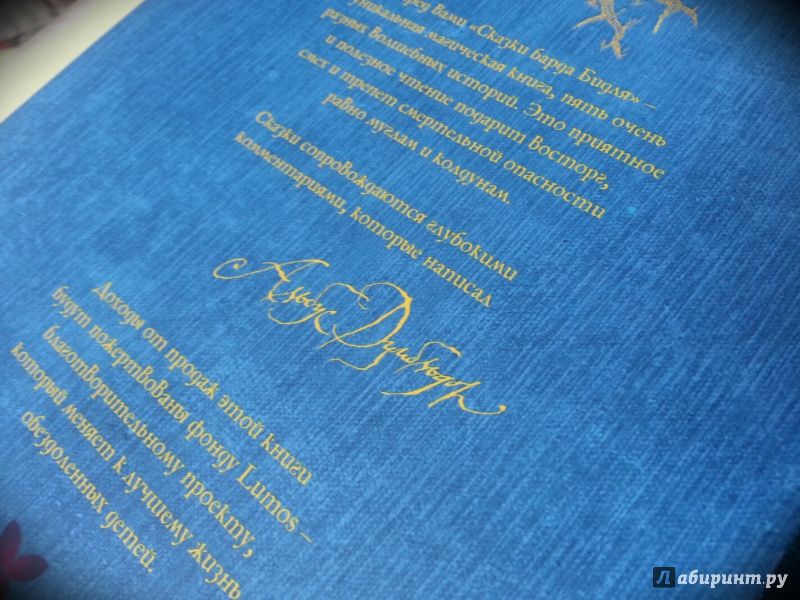 Перед Вами «Сказки барда Бидля» –
уникальная магическая книга, пять очень
разных волшебных историй. Это приятное
и полезное чтение подарит восторг,
смех и трепет смертельной опасности
равно муглам и колдунам.
Сказки сопровождаются глубокими
комментариями, которые написал
Альбус Думбльдор
Доходы от продаж этой книги
будут пожертвованы фонду Lumos –
благотворительному проекту,
который меняет к лучшему жизнь
обездоленных детей.
Лабиринт.ру